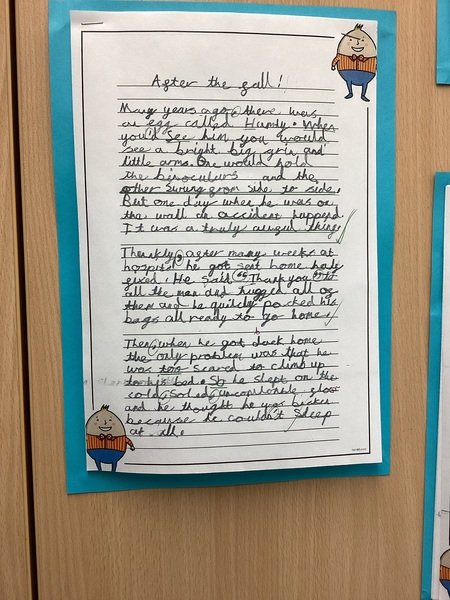 After the fall!
Many years ago, there was
an egg called Humdy. When
you'd see him you would
see a bright big grin and
little arms. One would hold
the binoculurs and the
other swung from side to side.
But one day when he was on
the wall an accident happend.
It was a truly awful thing
Thankly, after many weeks at
hospital he got sent home
fixed. He said "Thank you" to
all the men and hugged all of
them and he quikly packed his
bags all ready to go home.
Then, when he got back home
the only problem was that he
was too scared to climb up
to his bed. So he slept on the
cold, solid, floor
and he thought he was
because he couldn't sleep
at all.